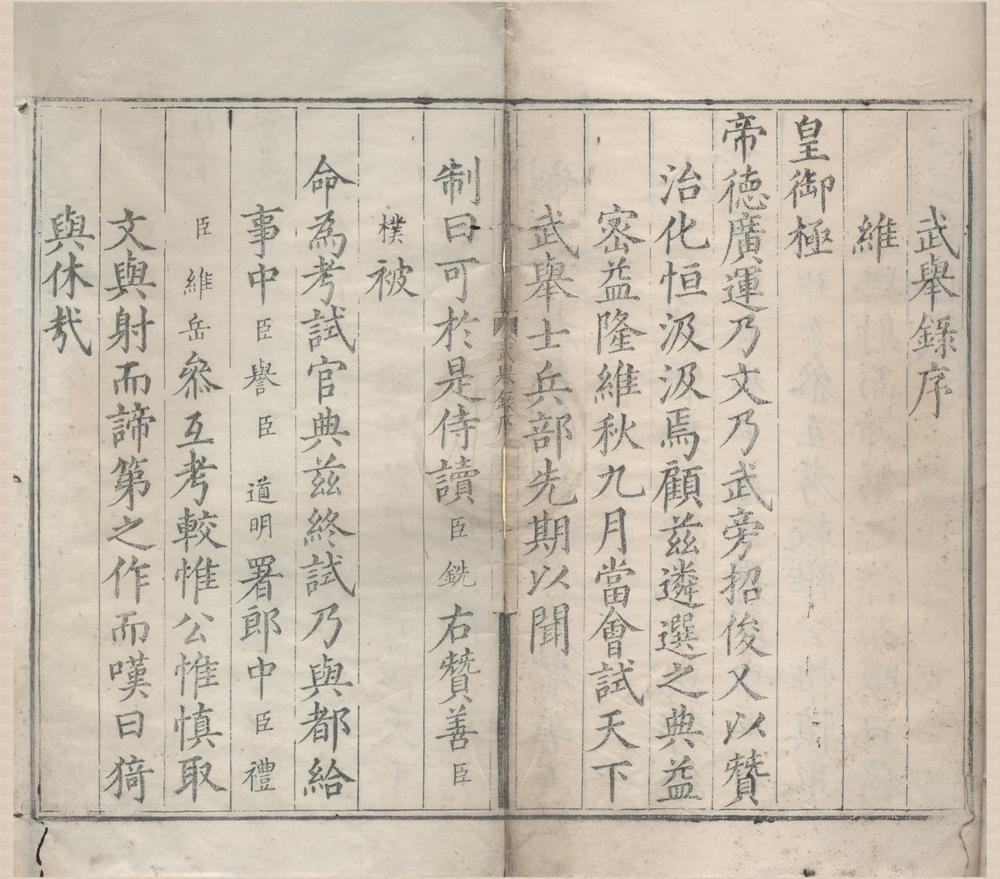 武舉錄序
維
皇御極
帝德廣運乃文乃武旁招俊乂以贊
治化恒汲汲焉顧茲遴選之典益
密益隆維秋九月當會試天下
武舉士兵部先期以聞
武舉錄序
制曰可於是侍讀臣銑右贊善臣
樸被
命為考試官典茲終試乃與都給
事中臣譽臣道明署郎中臣禮
臣維岳叅互考較惟公惟慎取
文與射而諦第之作而嘆曰猗
與休哉